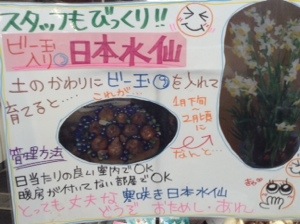 スタッフもびっくり!!
ビー玉入り 日本水仙
土のかわりにビー玉を入れて
育てると‥‥ これが‥
1月下旬
〜2月頃に
なんと‥
管理方法
日当たりの良い室内でOK
暖房が付いてない部屋でOK
寒咲き日本水仙
とっても丈夫な
どうぞ おためしあれ